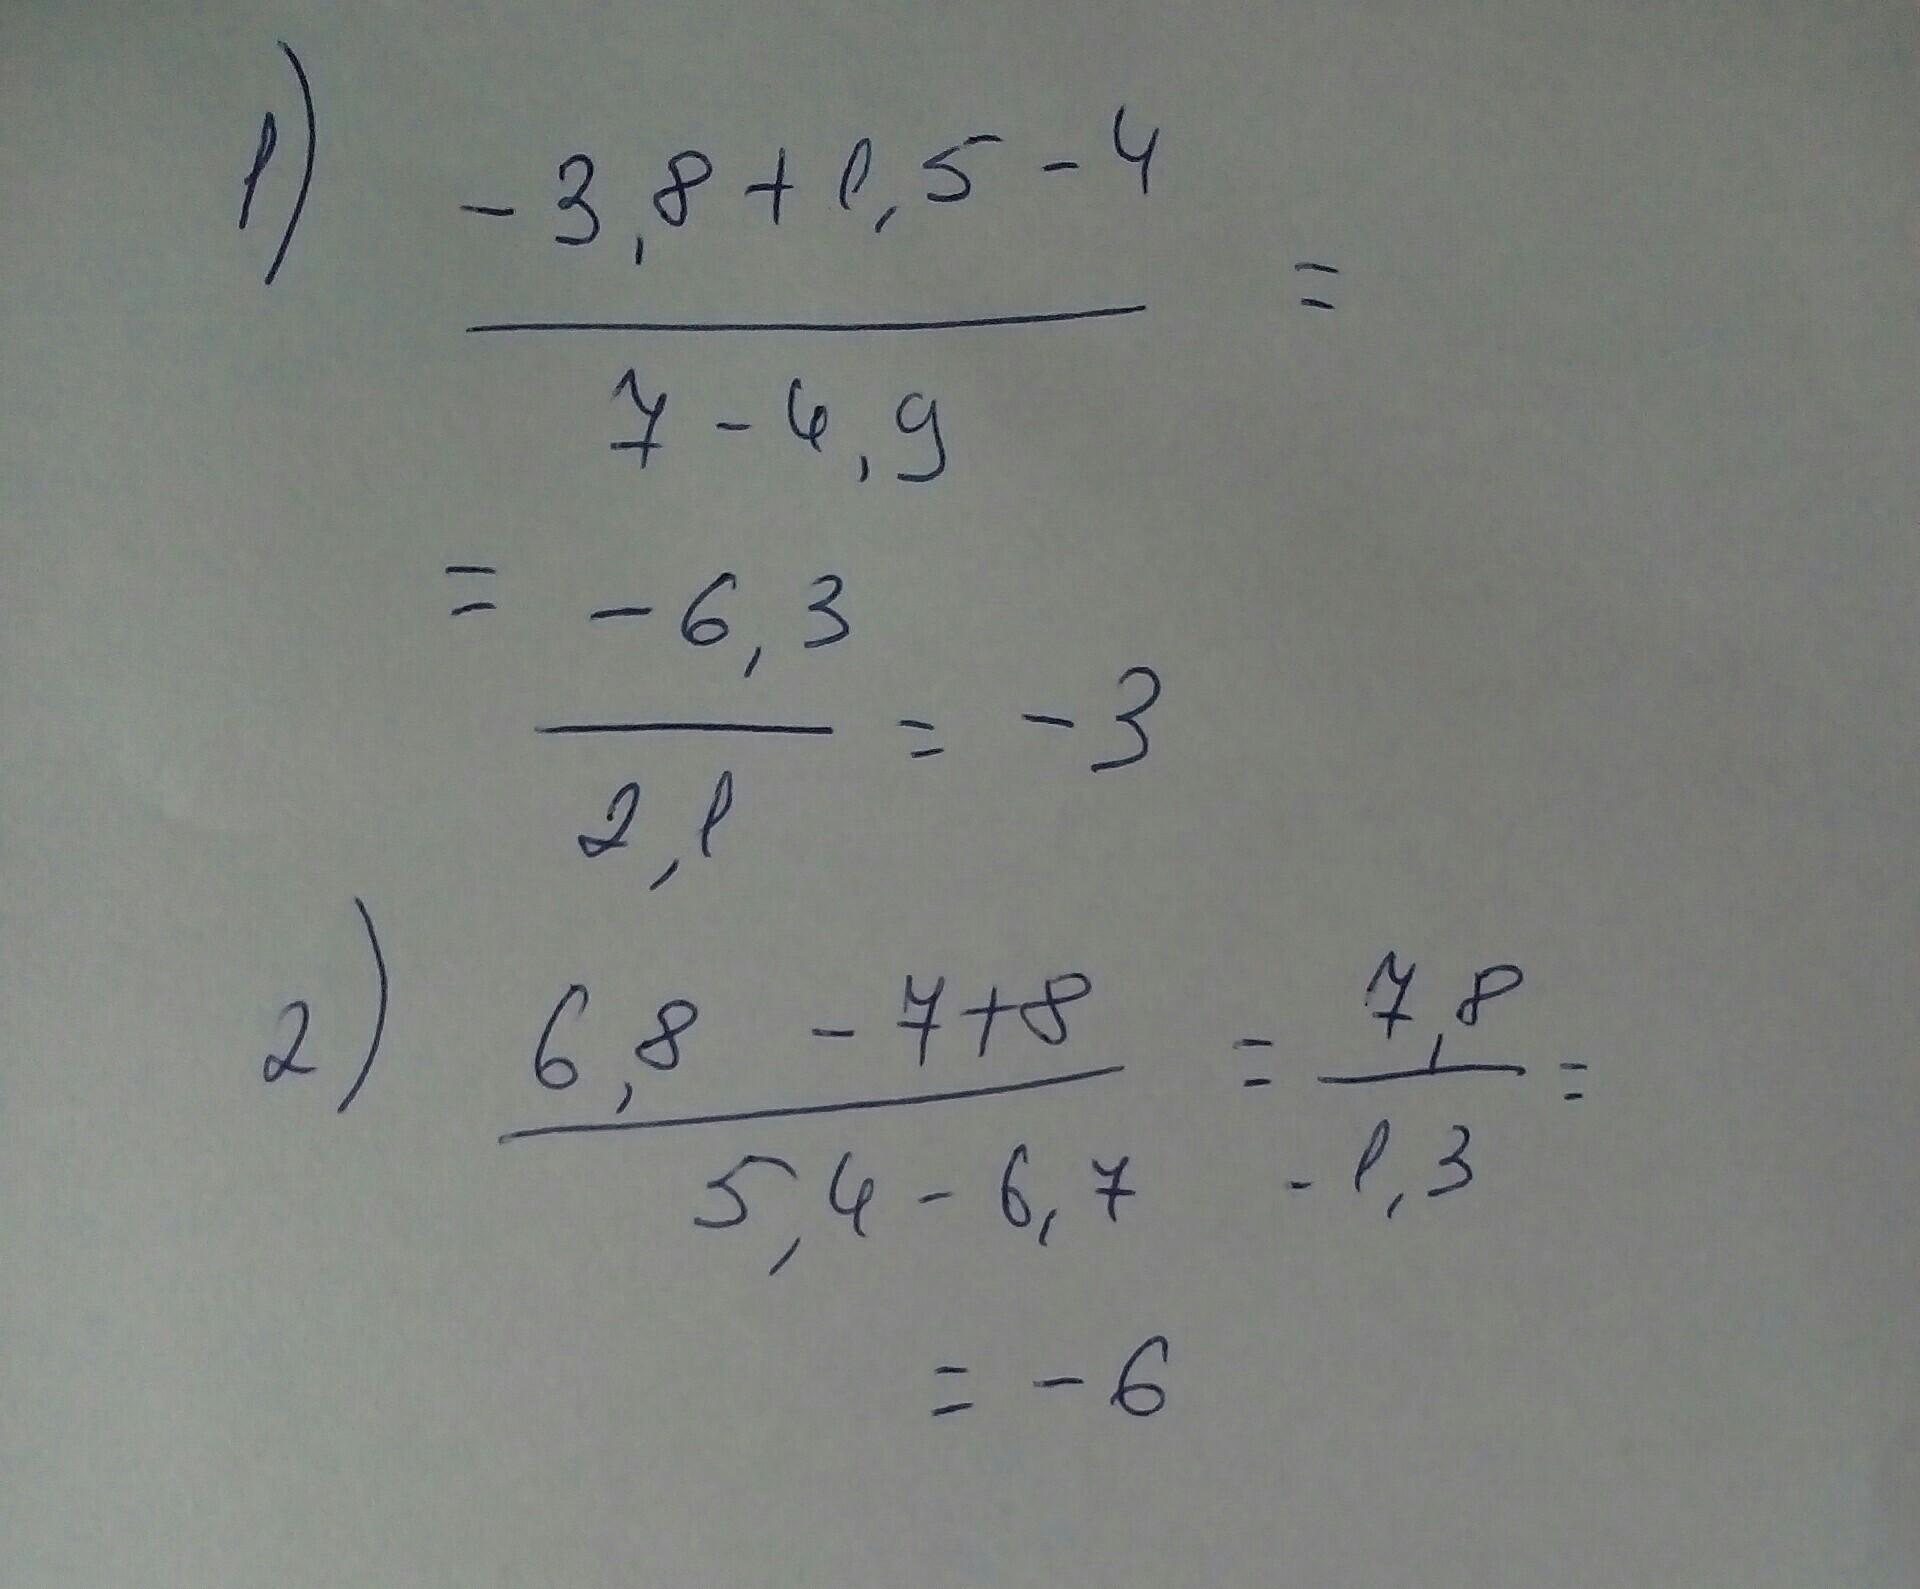 1) -3,8+1,5-4
7-4,9 =
= -6,3
2,1 = -3
2) 6,8 -7+8 = 7,8
5,4-6,7 -1,3 =
= -6